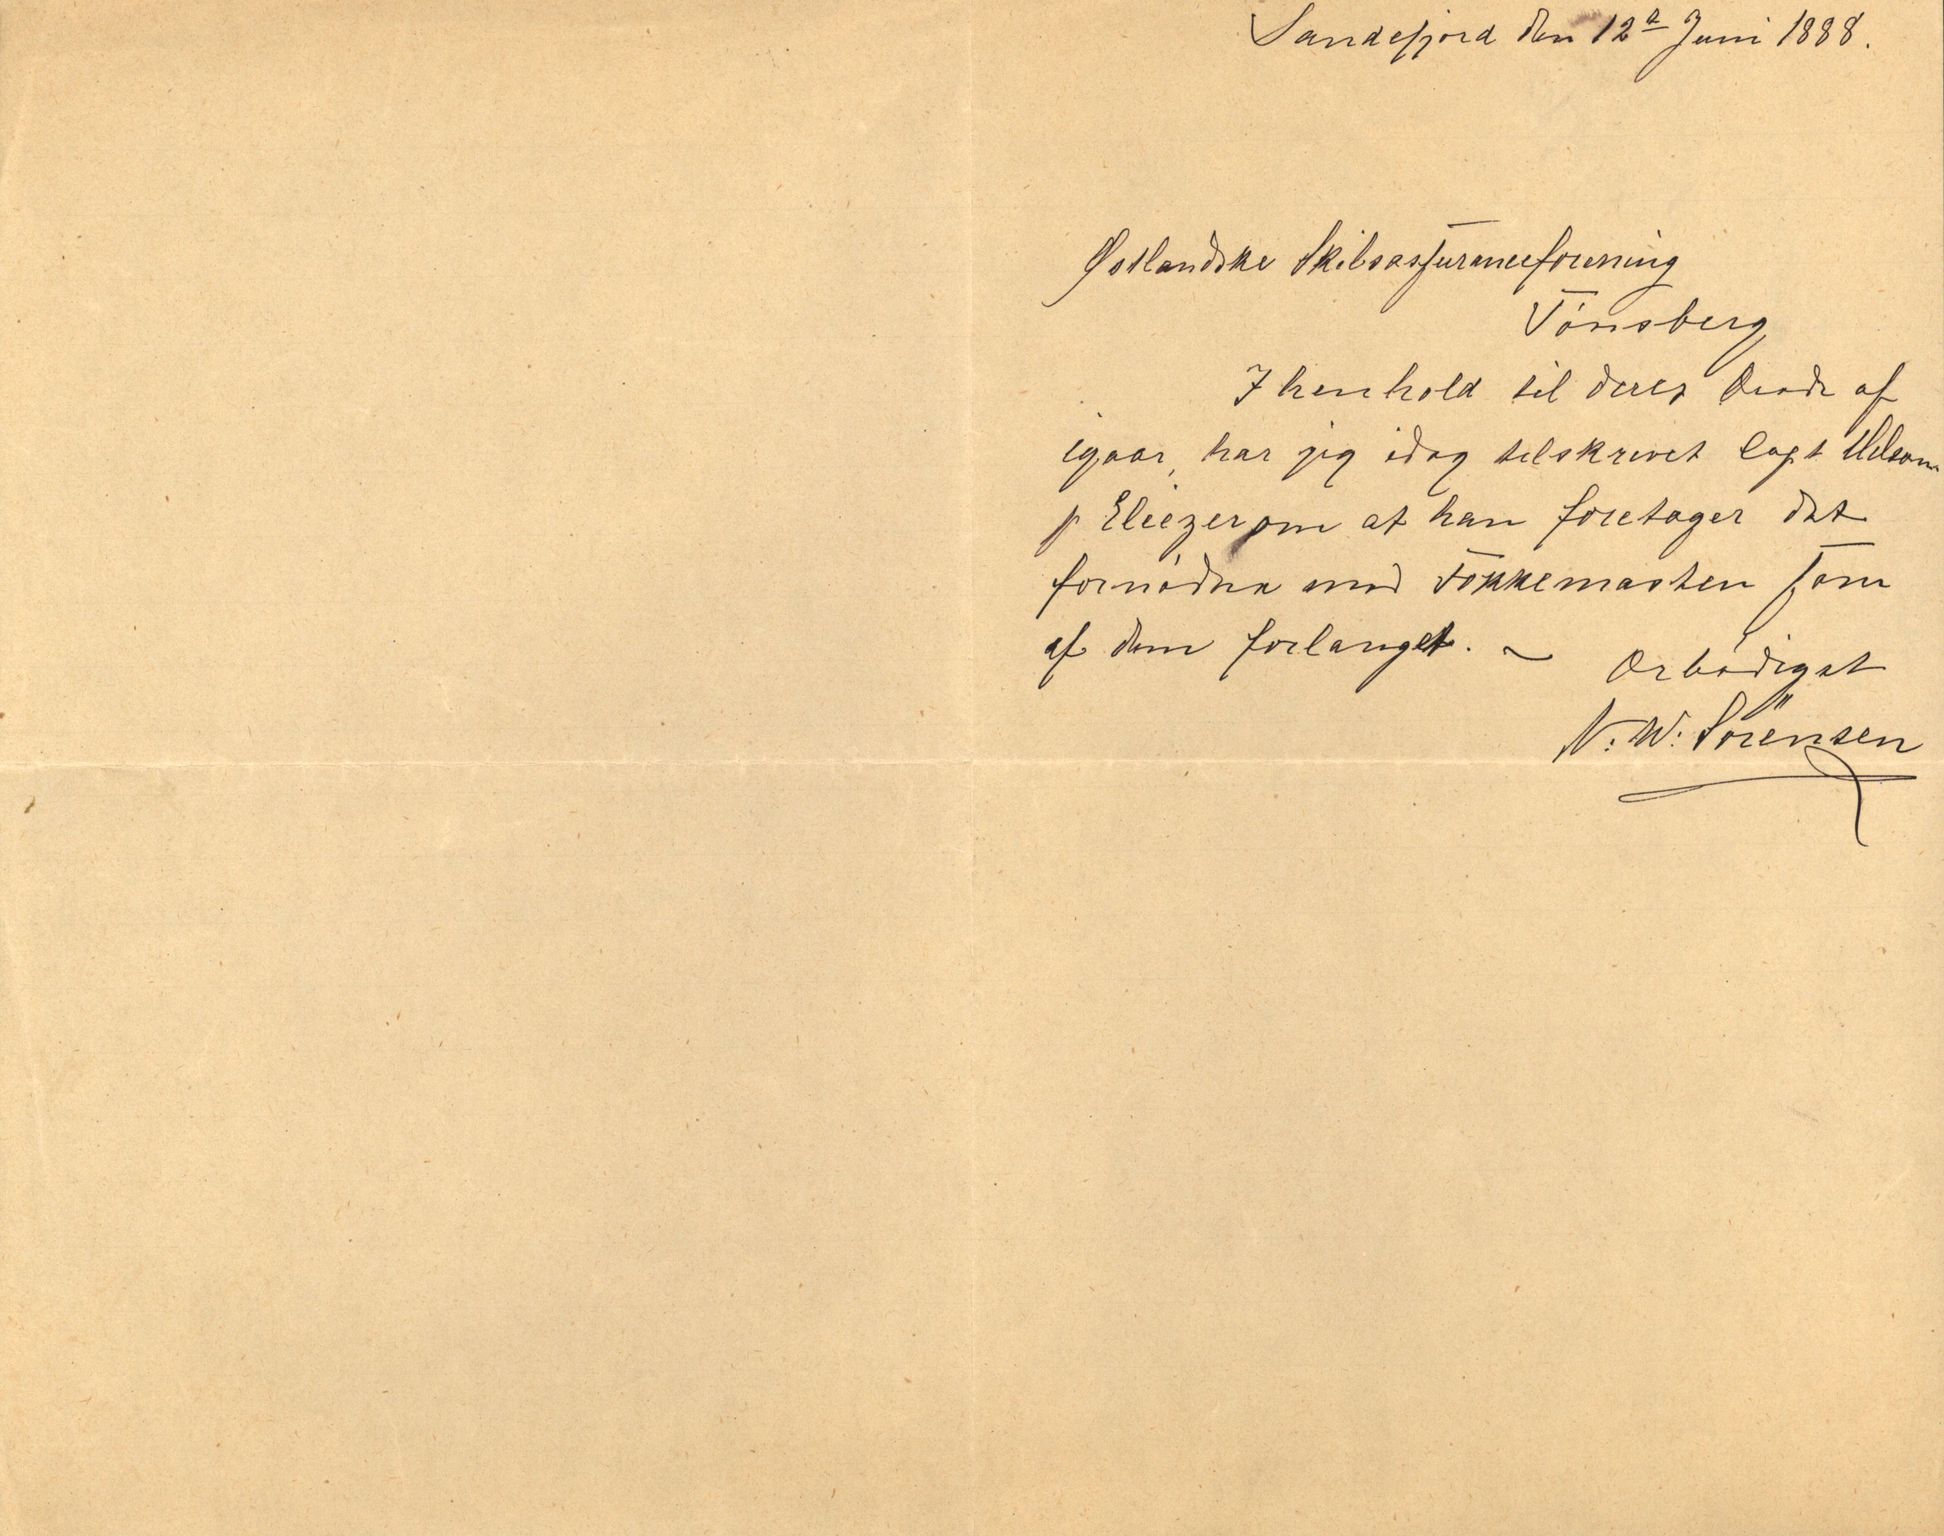 Sandefjord den 12te Juni 1888.
Østlandske Skibsassuranceforening
Tönsberg
I henhold til deres Ærede af
igaar, har jeg idag tilskrevet Capt
p Eliezer om at han foretager det
fornödne med Fokkemasten som
af dem forlanget. ~
Ærbödigst
N. W. Sörensen